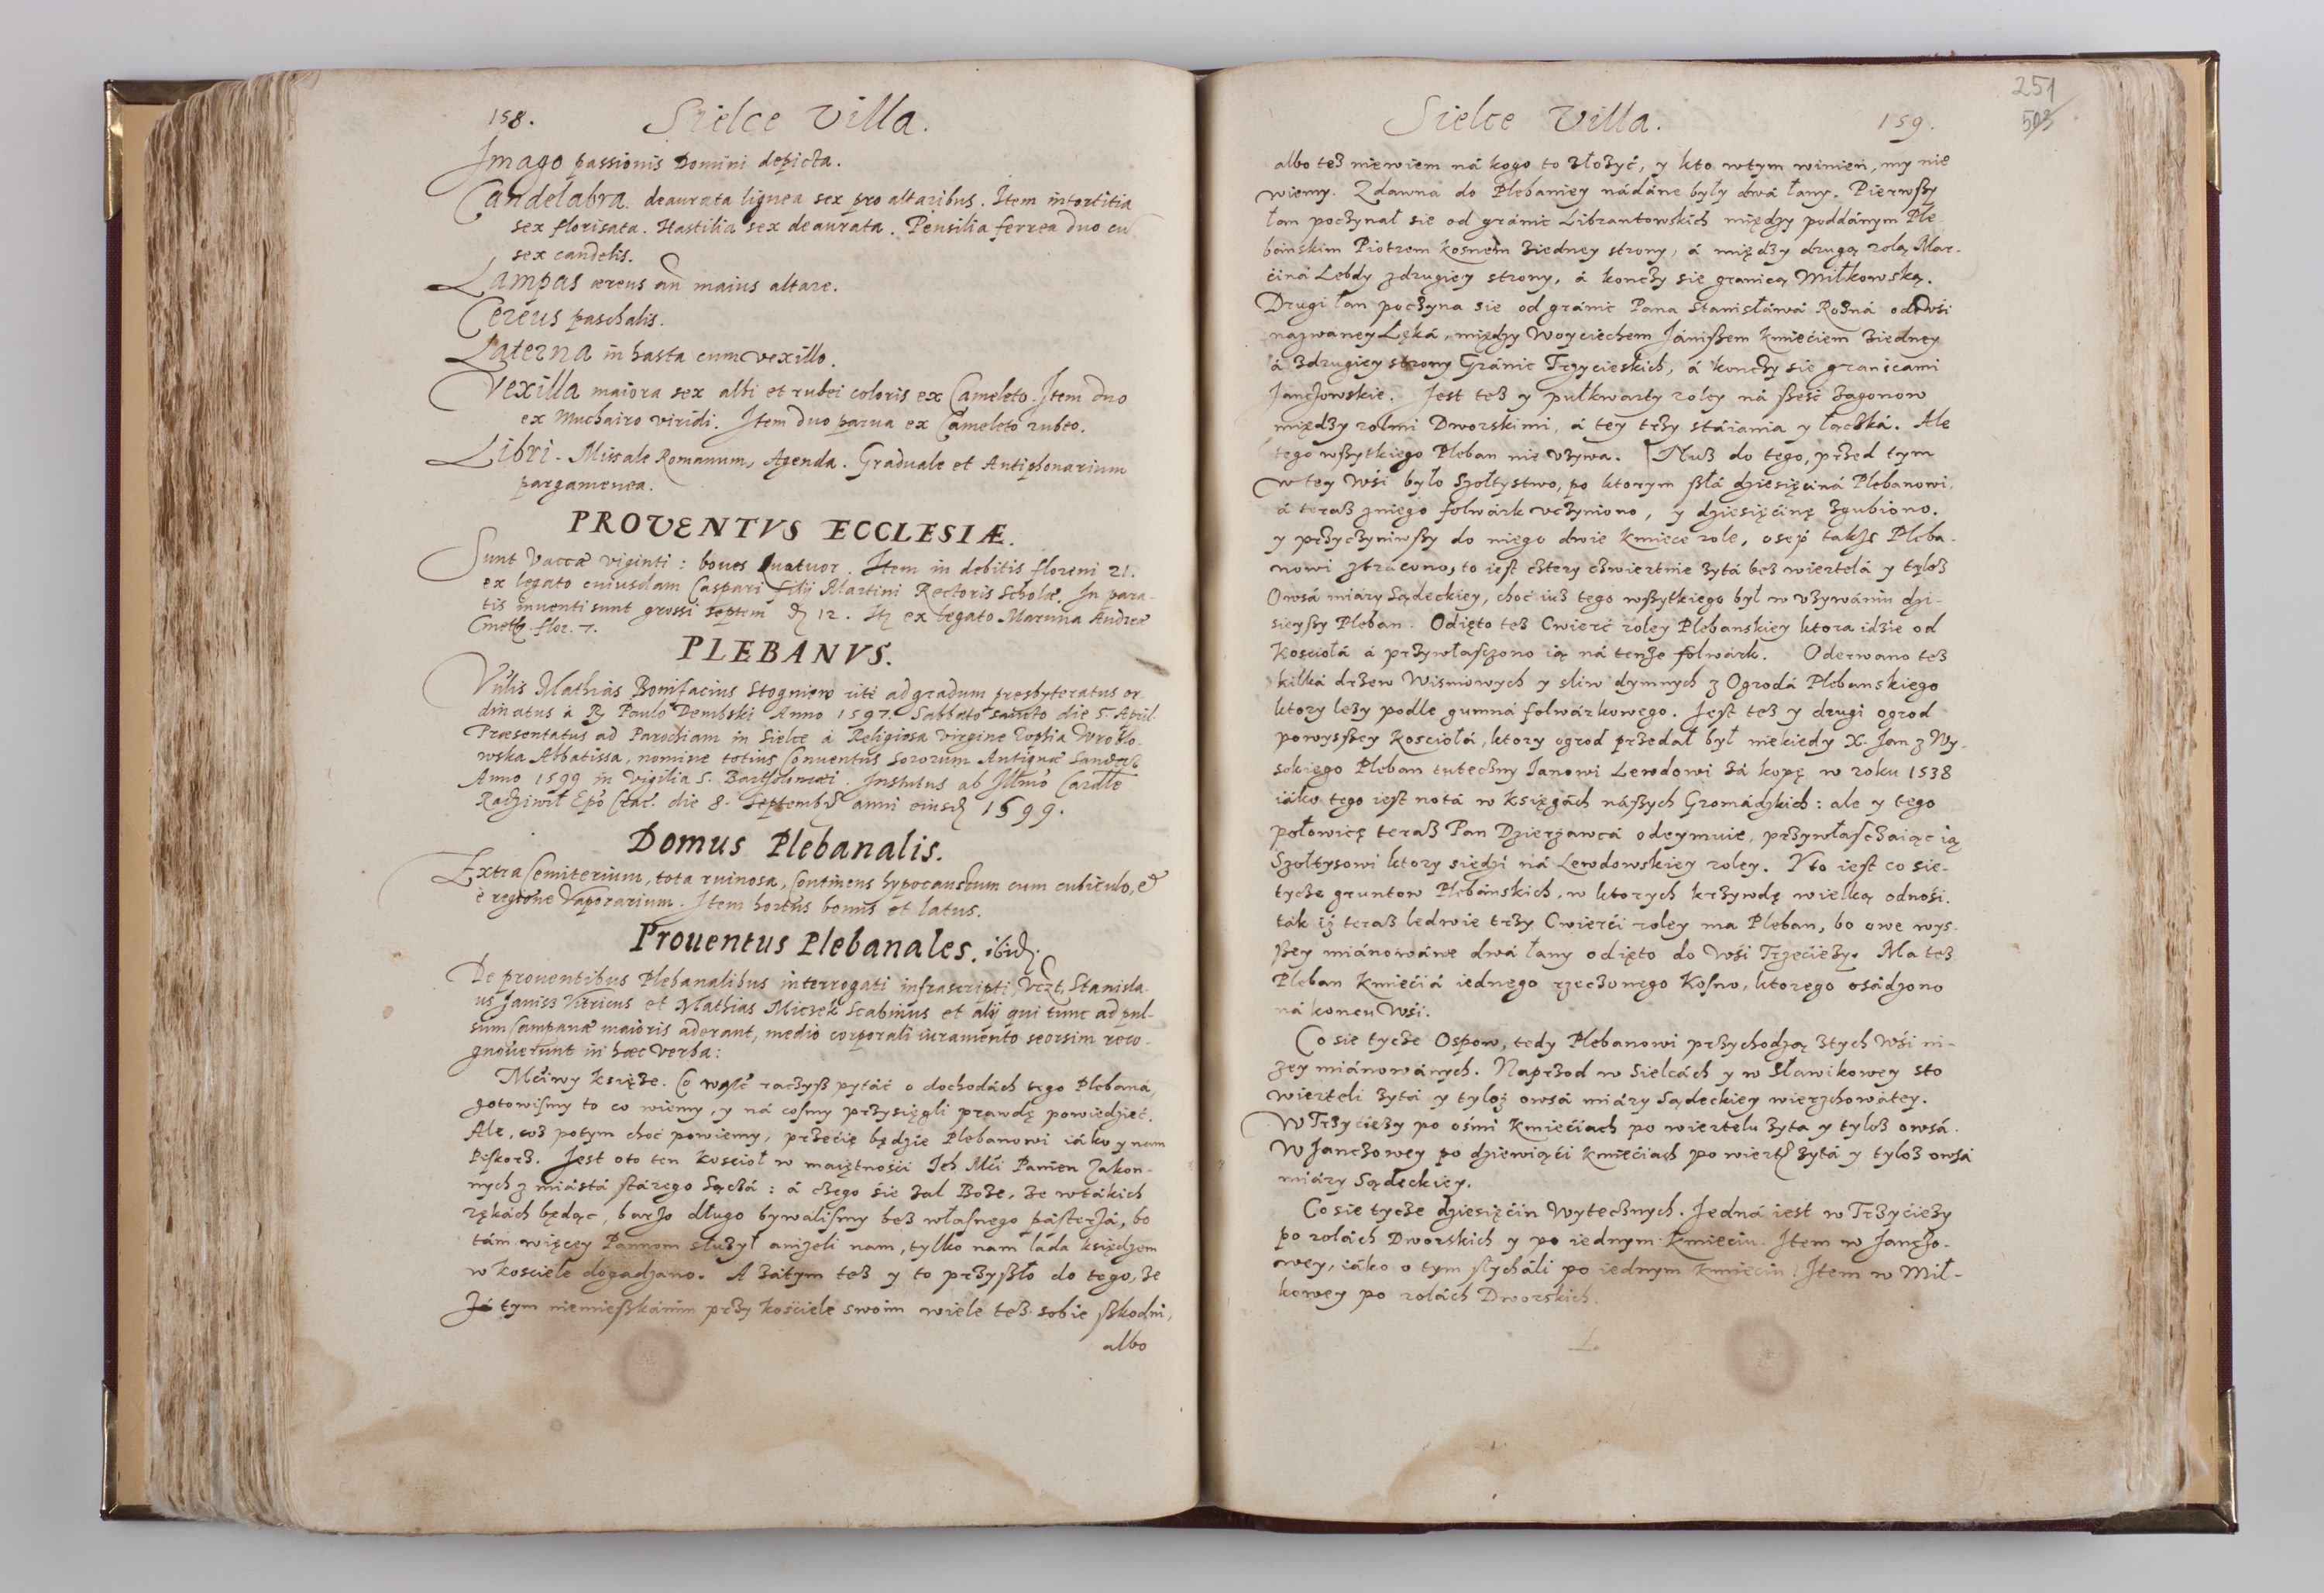 158. Sielce Villa.
Imago passionis Domini depicta.
Candelabra deaurata lignea sex pro altaribus. Item intortitia
sex florisata. Hastilia sex deaurata. Pensilia ferrea duo cū
sex candelis.
Lampas æreus an maius altare.
Cereus paschalis.
Laterna in hasta cum vexillo.
Vexilla maiora sex albi et rubei coloris ex Cameleto. Item duo
ex Muchairo viridi. Item duo parua ex Cameleto rubeo.
Libri. Missale Romanum, Agenda. Graduale et Antiphonarium
pargamenea.
PROVENTVS ECCLESIÆ.
Sunt Vaccæ viginti: boues quatuor. Item in debitis floreni 21.
ex legato cuiusdam Caspari filij Martini Rectoris Scholæ. In para-
tis inuenti sunt grossi septem 12. ex legato Maruna Andreæ
Cmeth. flor. 7.
PLEBANVS.
Mathias Bonifacius Stogniew rite ad gradum presbyteratus or-
dinatus à Paulo Dembski Anno 1597. Sabbato sancto die 5. April
Præsentatus ad Parochiam in Sielce à Religiosa Virgine Zophia Wroblo-
wska Abbatissa, nomine totius Conuentus Sororum Antiquæ Sandecz
Anno 1599 in Vigilia S. Bartholomæi. Institutus ab Illmo Cardle
Radziwil Epo Crac. die 8. Septemb anni eiusd 1599.
Domus Plebanalis.
Extra Cemiterium, tota ruinosa, Continens hypocaustum cum cubiculo, et
è regione Vaporarium. Item hortus bonus et latus.
Prouentus Plebanales. ibid.
De prouentibus Plebanalibus interrogati infrascripti, Vczt. Stanisla-
us Janisz Vitricus et Mathias Miczek Scabinus et alij qui tunc ad pul-
sum Campanæ maioris aderant, medio corporali iuramento seorsim reco-
gnouerunt in hæc verba:
Mciwy Księże. Co raczysz pytáć o dochodách tego Plebaná,
gotowismy to co wiemy, y ná cosmy przysięgli prawdę powiedzieć.
Ale, coz potym choć powiemy, przecię będzie Plebanowi iáko y nam
Piskorz. Jest oto ten Kosciol w maiętności Ich Mći Panien Zakon-
nych z miástá stárego Sączá: á czego sie zal Boze, ze wtákich
rękách będąc, barzo długo bywalismy bez własnego pásterzá, bo
tám więcey Pannom słuzył anizeli nam, tylko nam láda księdzem
w kosciele dogadzano. A zátym tez y to przyszło do tego, ze
Zá tym niemieszkánim przy kosciele swoim wiele tez sobie szkodni,
albo
251
503
Sielce Villa. 159.
albo tez niewiem ná kogo to złozyć, y kto wtym winien, my nie
wiemy. Zdawna do Plebaniey nádáne były dwá łany. Pierwszy
łan poczynał sie od gránic Librantowskich między poddánym Ple-
bánskim Piotrem Kosnem ziedney strony, á między drugą rolą Mar-
ciná Lebdy zdrugiey strony, á konczy sie granicą Miłkowską.
Drugi łan poczyna sie od gránic Pana Stanisłáwá Rozná od Wśi
nazwaney Łęká, między Woyciechem Jániszem Kmieciem ziedney
á zdrugiey strony Gránic Trzycieskich, á konczy sie granicami
Janczowskie. Jest tez y pułkwarty roley ná szesć zagonow
między rolmi Dworskimi, á tey trzy stáiania y łączká. Ale
tego wszytkiego Pleban nie vzywa. Nuz do tego, przed tym
w tey Wśi było Szołtystwo, po ktorym szłá dziesięćiná Plebanowi,
á teraz zniego folwárk vczyniono, y dziesięćinę zgubiono.
y przyczyniwszy do niego dwie Kmiece role, osep także Pleba-
nowi ztracono, to iest cztery czwiertnie zytá bez wiertelá y tyloz
Owsá miáry Sądeckiey, choć iuz tego wszytkiego był w vzywániu dzi-
sieyszy Pleban. Odięto tez Cwierć roley Plebanskiey ktora idzie od
Kosciołá á przywłaszczono ią ná tenze folwárk. Oderwano tez
kilká drzew Wisniowych y sliw dymnych z Ogrodá Plebanskiego
ktory lezy podle gumná folwárkowego. Jest tez y drugi ogrod
powyszszey Kosciołá, ktory ogrod przedał był niekiedy X. Jan z Wy-
sokiego Pleban tuteczny Janowi Lewdowi zá kopę w roku 1538
iáko tego iest notá w Księgách nászych Gromádzkich: ale y tego
połowicę teraz Pan Dzierzawcá odeymuie, przywłaszczaiąc ią
Szołtysowi ktory siedzi ná Lewdowskiey roley. Y to iest co sie-
tycze gruntow Plebánskich, w ktorych krzywdę wielką odnosi.
ták iż teraz ledwie trzy Cwierći roley ma Pleban, bo owe wys-
szey miánowáne dwá łany odięto do Wśi Trzeciezy. Ma tez
Pleban Kmiećiá iednego rzeczonego Kosno, ktorego osádzono
ná koncu Wśi.
Co sie tycze Ospow, tedy Plebanowi przychodzą ztych Wśi ni-
zey miánowánych. Naprzod w Sielcách y w Sławikowey sto
wierteli zytá y tyloz owsá miáry Sądeckiey wierzchowátey.
W Trzyciezy po ośmi Kmieciach po wiertelu zyta y tyloz owsá.
W Janczowey po dziewiąći kmiećiach po wiert zytá y tyloz owsá
miáry Sądeckiey.
Co sie tycze dziesięćin Wytecznych. Jedná iest w Trzyćiezy
po rolách Dworskich y po iednym Kmieciu. Item w Janczo-
wey, iáko o tym slycháli po iednym Kmieciu. Item w Mił-
kowey po rolách Dworskich.